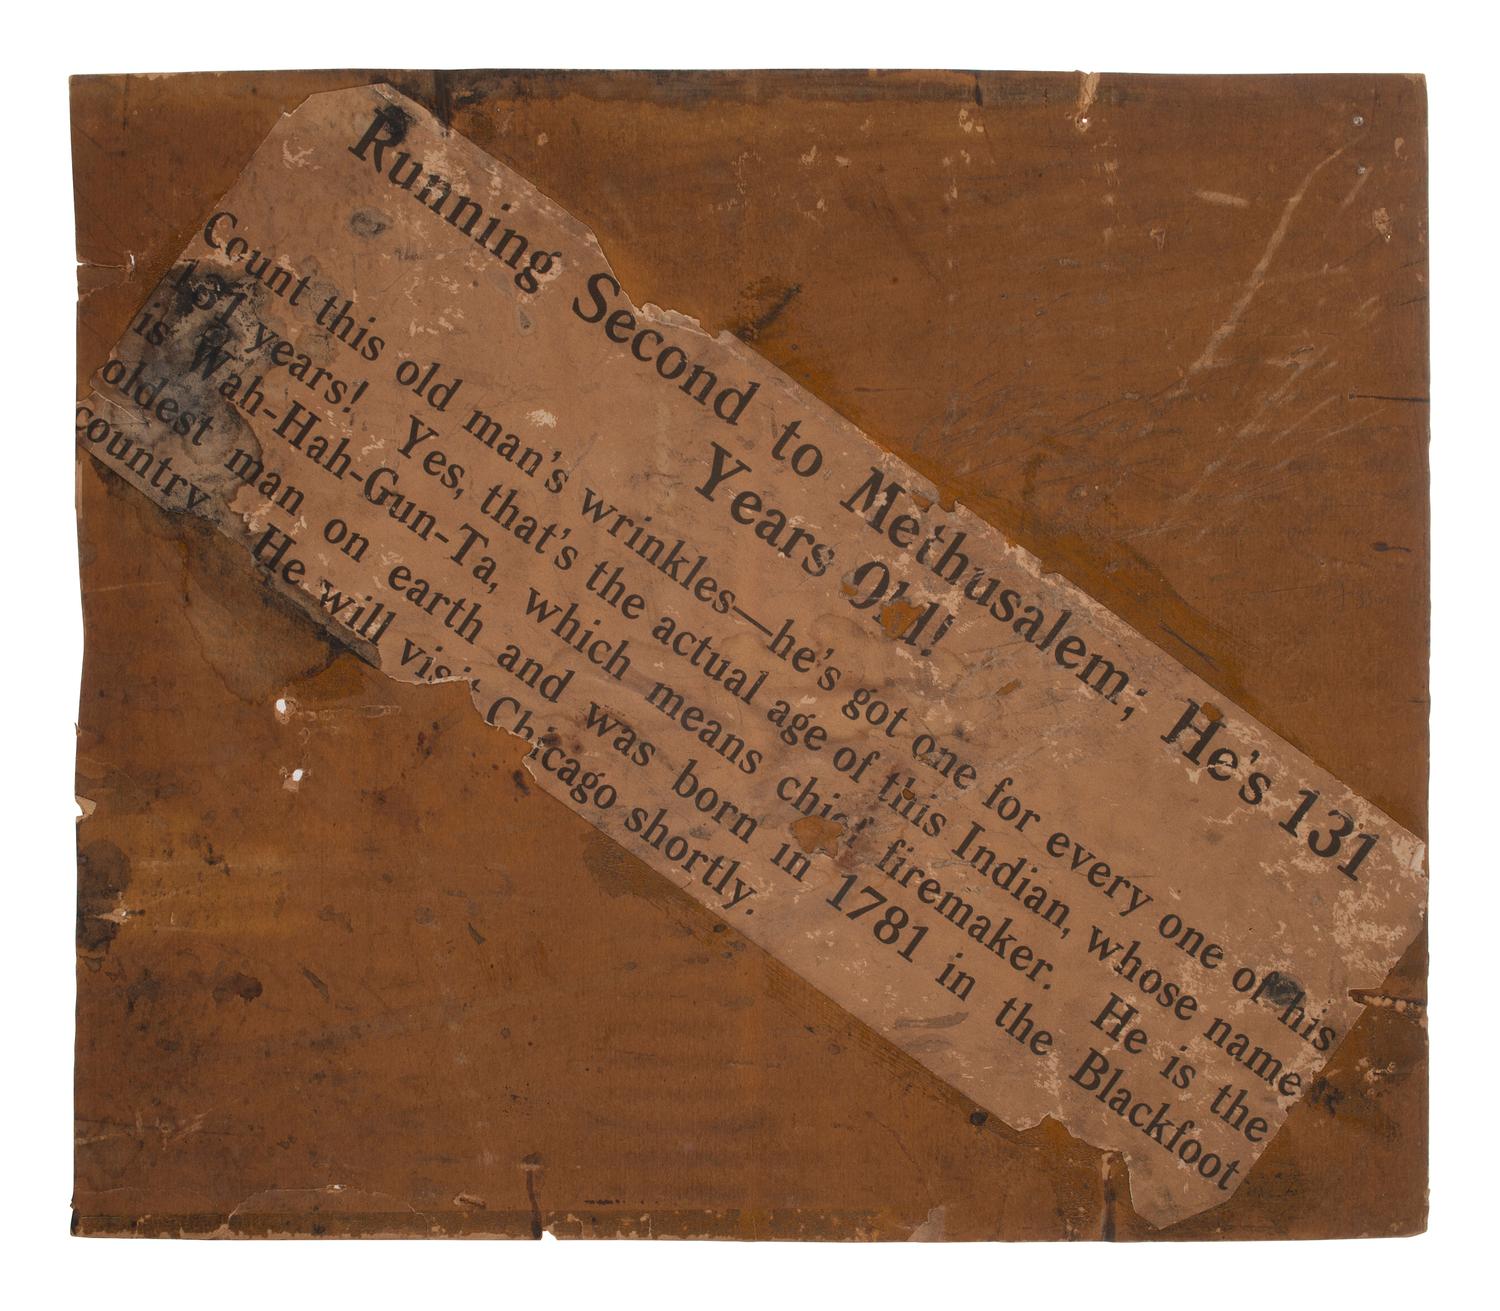 Running Second to Methusalem; He's 131
Years Old!
Count this old man's wrinkles—he's got one for every one of his
131 years! Yes, that's the actual age of this Indian, whose name
is Wah-Hah-Gun-Ta, which means chief firemaker. He is the
oldest man on earth and was born in 1781 in the Blackfoot
country. He will visit Chicago shortly.